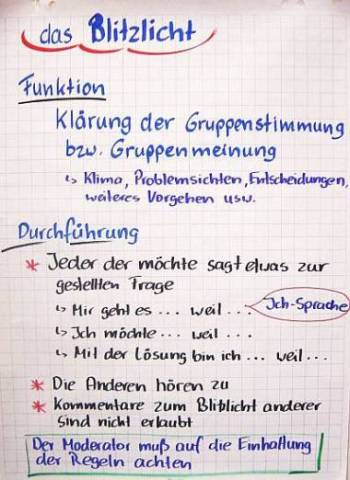 das Blitzlicht
Funktion
Klärung der Gruppenstimmung
bzw. Gruppenmeinung
↳ Klima, Problemsichten, Entscheidungen,
weiteres Vorgehen usw.
Durchführung
* Jeder der möchte sagt etwas zur
gestellten Frage
↳ Mir geht es ... weil ...
Ich-Sprache
↳ Ich möchte ... weil ...
↳ Mit der Lösung bin ich ... weil ...
* Die Anderen hören zu
* Kommentare zum Blitzlicht anderer
sind nicht erlaubt
Der Moderator muß auf die Einhaltung
der Regeln achten